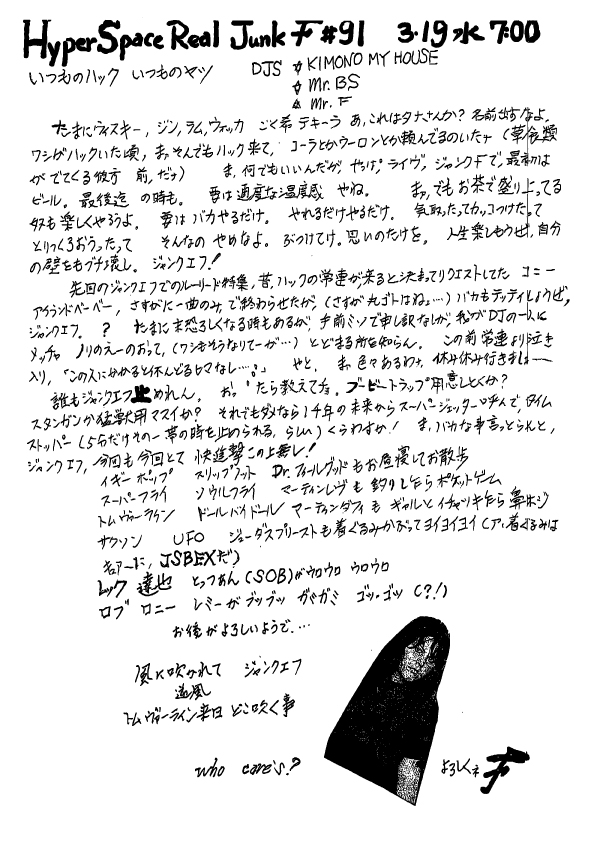 HyperSpace Real Junk F #91 3・19 水 7:00
いつものハック いつものヤツ DJS ☆ KIMONO MY HOUSE
☆ Mr. BS
☆ Mr. F
たまにウィスキー, ジン, ラム, ウォッカ ごく希 テキーラ あ, これはタナさんか? 名前出すなよ。
ワシがハックいた頃, まぁそんでもハック来て, コーラとかウーロンとか頼んでるのいたナ (草食類
がでてくる彼方 前, だナ) ま, 何でもいいんだが, やっぱ, ライヴ, ジャンクFで, 最初は
ビール。 最後迄 の時も。 要は適度な温度感 やね。 まぁ, でもお茶で盛り上ってる
奴も楽しくやろうよ。 要はバカやるだけ。 やれるだけやるだけ。 気取ったってカッコつけたって
とりつくろおうったって そんなの やめなよ。 ぶつけてけ。思いのたけを。 人生楽しもうぜ, 自分
の壁をもブチ壊し。 ジャンクエフ!
先回のジャンクエフでのルーリード特集, 昔, ハックの常連が来ると決まってリクエストしてた コニー
アイランドベーベー, さすがに一曲のみ, で終わらせたが, (さすが, 丸ゴトはねぇ…) バカもデッティしようぜ,
ジャンクエフ。 ? たまに末恐ろしくなる時もあるが, 手前ミソで申し訳なしが, 我がDJの一人に
メッチャ ノリのえーのおって, (ワシもそうなりてーが…) とどまる所を知らん。 この前 常連より泣き
入り, 「この人にかかると休んどるヒマなし…。」 やと。 ま, 色々あるわナ, 休み休み行きましょ〜
誰もジャンクエフ止めれん。 おったら教えてチョ。 ブービートラップ用意しとくか?
スタンガンか猛獣用マスイか? それでもダメなら1千年の未来からスーパージェッター呼んで, タイム
ストッパー (5分だけその一帯の時を止められる, らしい) くらわすか! ま, バカな事言っとらんと,
ジャンクエフ, 今回も今回とて 快進撃この上無し!
イギーポップ スリップフット Dr. フィールグッドもお昼寝してお散歩
スーパーフライ ソウルフライ マーティンレヴも 釣りしたらポケットゲーム
トムヴァーライン ドールバイドール マーティンダフィも ギャルとイチャツキたら鼻ホジ
サクソン UFO ジューダスプリーストも着ぐるみかぶってヨイヨイヨイ (アレ着ぐるみは
キュアーに, JSBEXだ)
レック 達也 とっつあん (SOB)がウロウロ ウロウロ
ロブ ロニー レミーがブツブツ ガミガミ ゴツ・ゴツ (?!)
お後がよろしいようで…
風に吹かれて ジャンクエフ
追風
トムヴァーライン来日 どこ吹く事
who care's? よろしくネ F